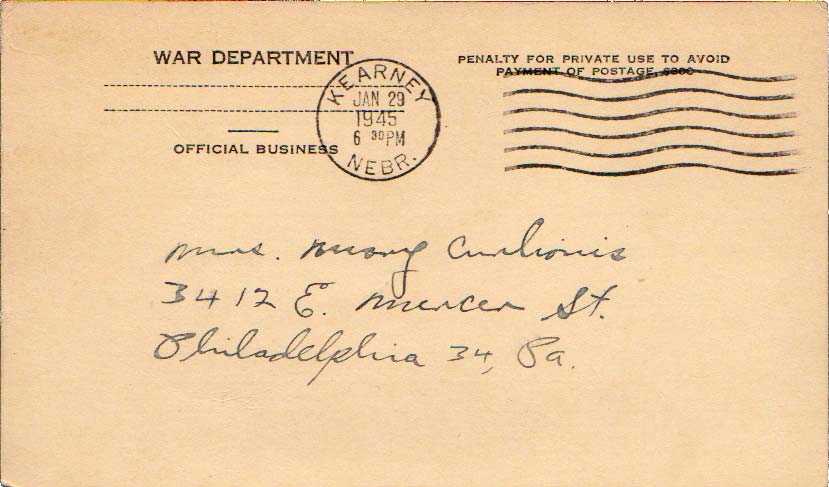 WAR DEPARTMENT
OFFICIAL BUSINESS
PENALTY FOR PRIVATE USE TO AVOID
PAYMENT OF POSTAGE, $300
KEARNEY
JAN 29
1945
6 30 PM
NEBR.
Mrs. Mary
3412 E. Mercer St.
Philadelphia 34, Pa.